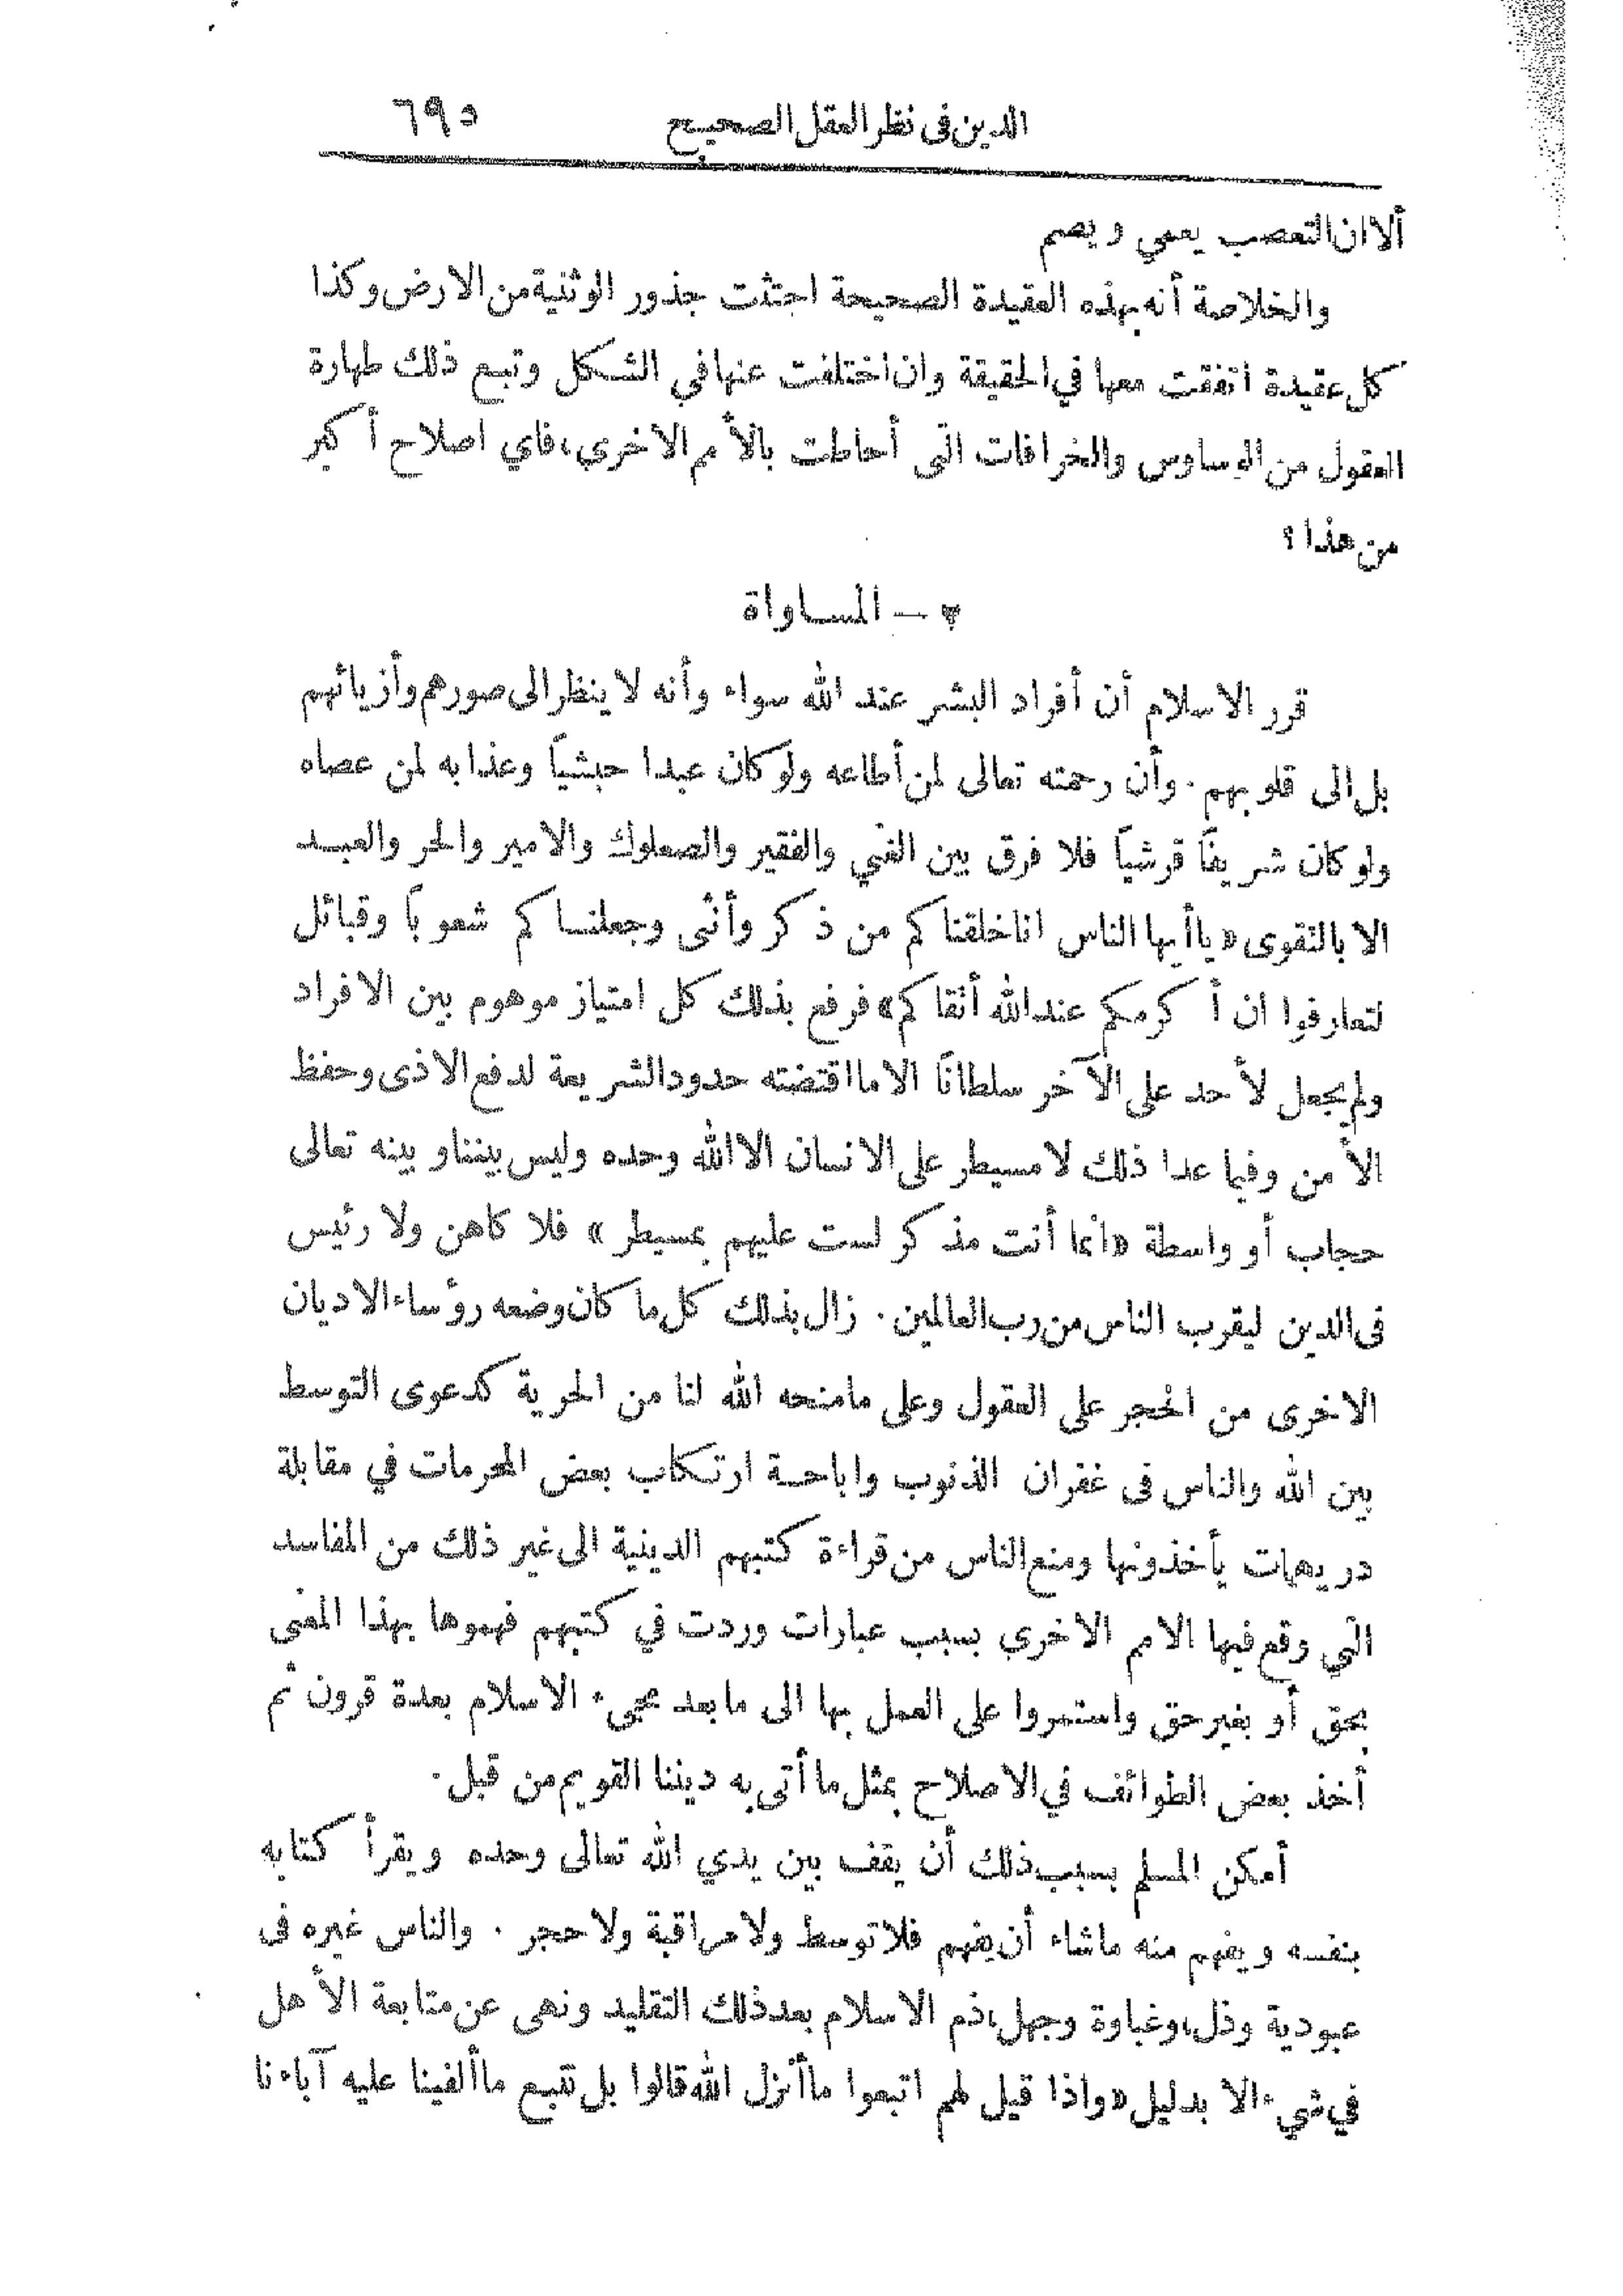 الدين فى نظر العقل الصحيح ٦٩٥
ألا ان التعصب يعمي ويصم
والخلاصة أنه بهذه العقيدة الصحيحة اجتثت جذور الوثنية من الارض وكذا
كل عقيدة اتفقت معها في الحقيقة وان اختلفت عنها في الشكل وتبع ذلك طهارة
العقول من الوساوس والخرافات التى أحاطت بالأمم الاخري، فاي اصلاح أكبر
من هذا؟
— المساواة
قرر الاسلام أن أفراد البشر عند الله سواء وأنه لا ينظر الى صورهم وأزيائهم
بل الى قلوبهم. وأن رحمته تعالى لمن أطاعه ولو كان عبدا حبشياً وعذابه لمن عصاه
ولو كان شريفاً قرشياً فلا فرق بين الغني والفقير والصعلوك والامير والحر والعبد
الا بالتقوى «ياأيها الناس انا خلقناكم من ذكر وأنثى وجعلناكم شعوباً وقبائل
لتعارفوا ان أكرمكم عند الله أتقاكم» فرفع بذلك كل امتياز موهوم بين الافراد
ولم يجعل لأحد على الآخر سلطانًا الا ما اقتضته حدود الشريعة لدفع الاذى وحفظ
الأمن وفيما عدا ذلك لا مسيطر على الانسان الا الله وحده وليس بيننا وبينه تعالى
حجاب أو واسطة «انما أنت مذكر لست عليهم بمسيطر» فلا كاهن ولا رئيس
فى الدين ليقرب الناس من رب العالمين. زال بذلك كل ما كان وضعه رؤساء الاديان
الاخرى من الحجر على العقول وعلى ما منحه الله لنا من الحرية كدعوى التوسط
بين الله والناس فى غفران الذنوب واباحة ارتكاب بعض المحرمات في مقابلة
دريهمات يأخذونها ومنع الناس من قراءة كتبهم الدينية الى غير ذلك من المفاسد
التي وقع فيها الامم الاخري بسبب عبارات وردت في كتبهم فهموها بهذا المعنى
بحق أو بغير حق واستمروا على العمل بها الى ما بعد مجيء الاسلام بعدة قرون ثم
أخذ بعض الطوائف في الاصلاح بمثل ما أتى به ديننا القويم من قبل.
أمكن المسلم بسبب ذلك أن يقف بين يدي الله تعالى وحده ويقرأ كتابه
بنفسه ويفهم منه ماشاء أن يفهم فلا توسط ولا مراقبة ولا حجر. والناس غيره فى
عبودية وذل، وغباوة وجهل، ذم الاسلام بعد ذلك التقليد ونهى عن متابعة الأهل
في شيء الا بدليل «واذا قيل لهم اتبعوا ما أنزل الله قالوا بل نتبع ما ألفينا عليه آباءنا